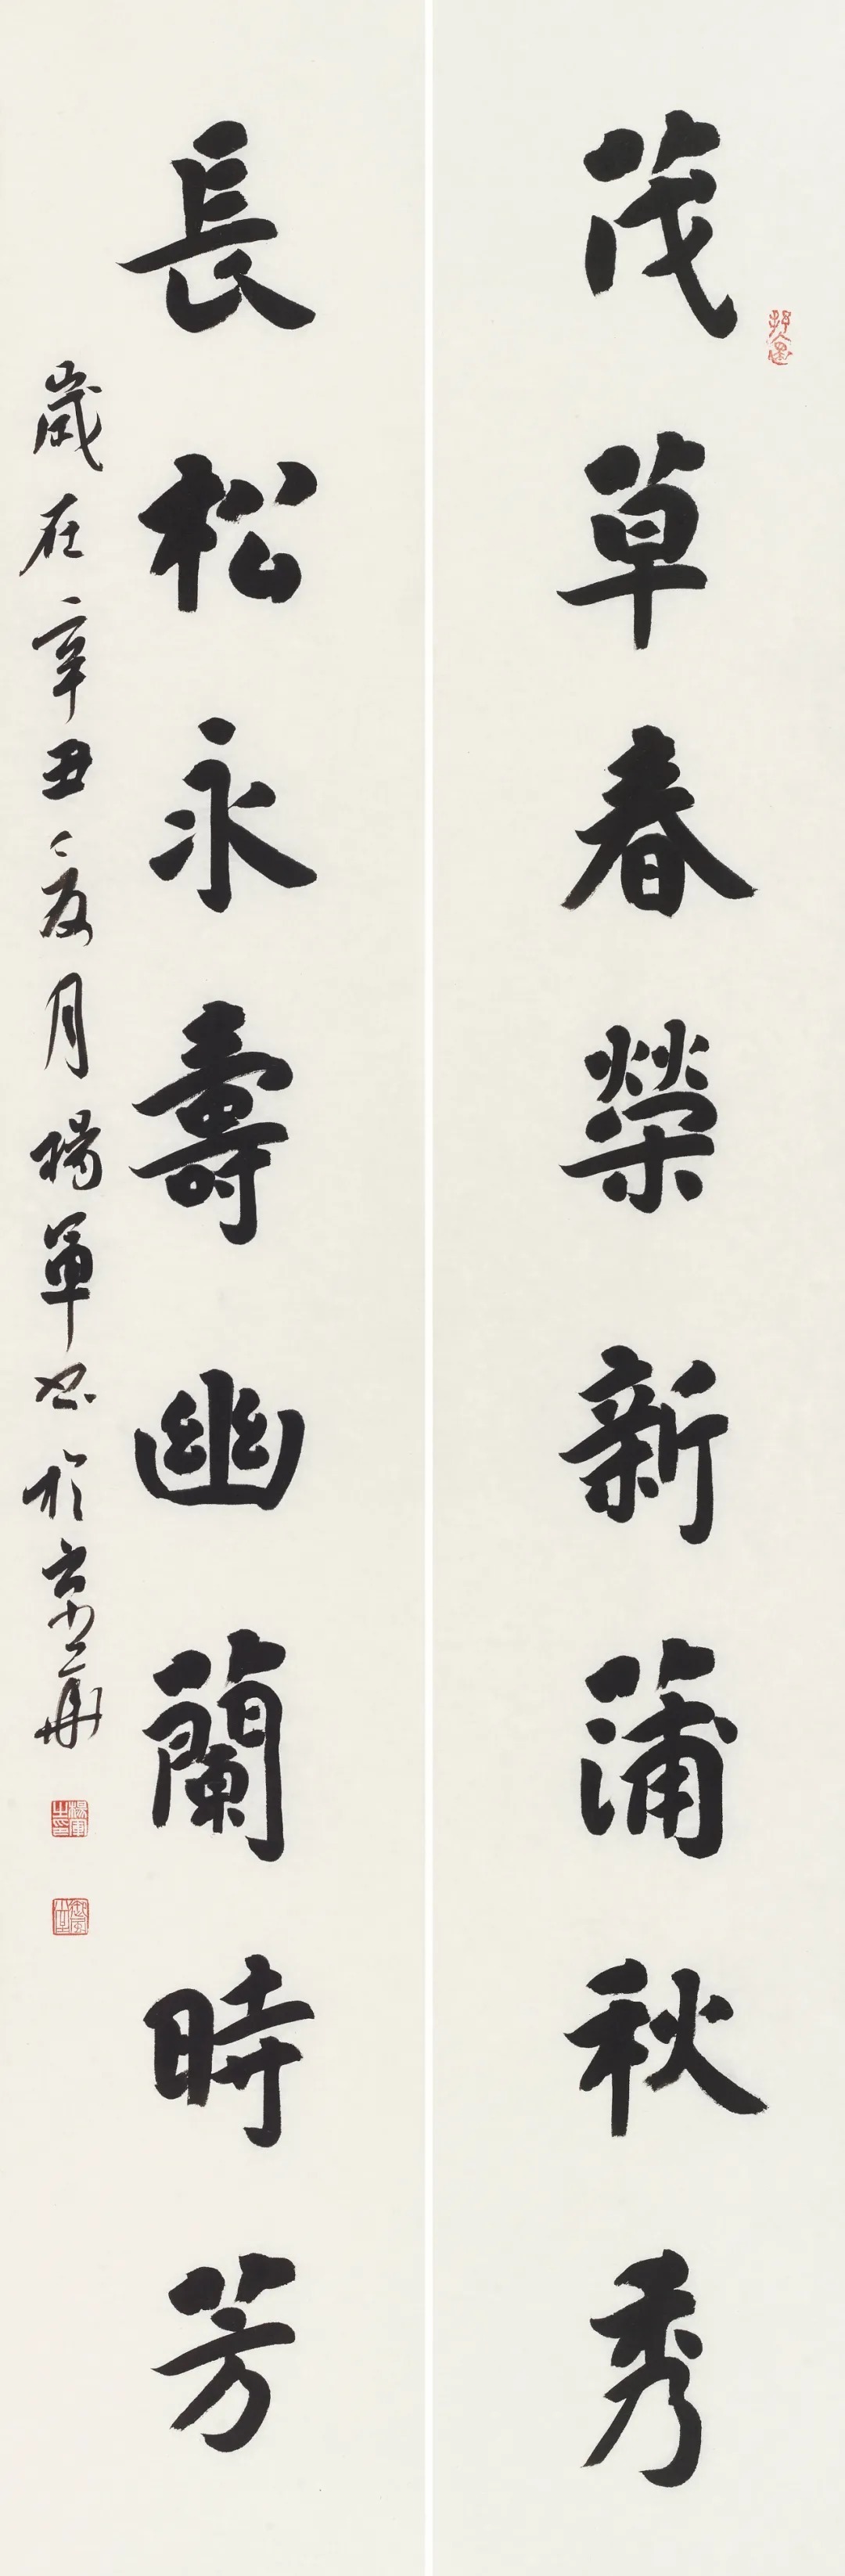 茂草春榮新蒲秋秀
長松永壽幽蘭時芳
歲在辛丑之夏月楊軍書於京華
楊軍之印